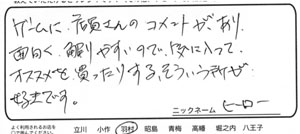 ゲームに店員さんのコメントがあり
面白く、解りやすいので、気に入って、
オススメを買ったりする、そういう所が
好きです。
ニックネーム ヒーロー
よく利用されるお店を
立川 小作 羽村 昭島 青梅 高幡 堀之内 八王子